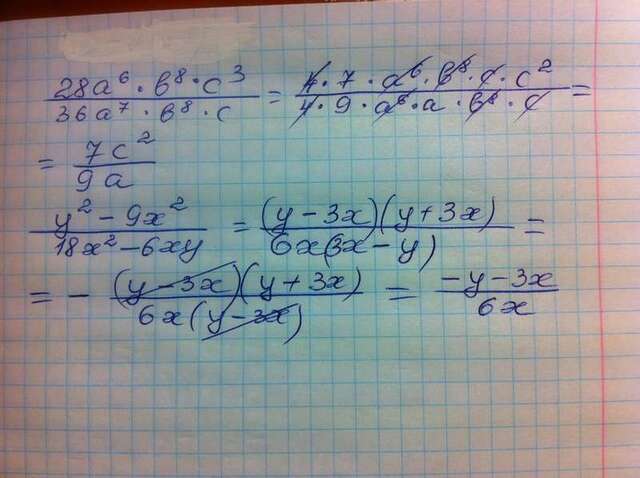 28a⁶·b⁸·c³ / 36a⁷·b⁸·c = 4·7·a⁶·b⁸·c·c² / 4·9·a⁶·a·b⁸·c =
= 7c² / 9a
y² - 9x² / 18x² - 6xy = (y - 3x)(y + 3x) / 6x(3x - y) =
= - (y - 3x)(y + 3x) / 6x(y - 3x) = -y - 3x / 6x